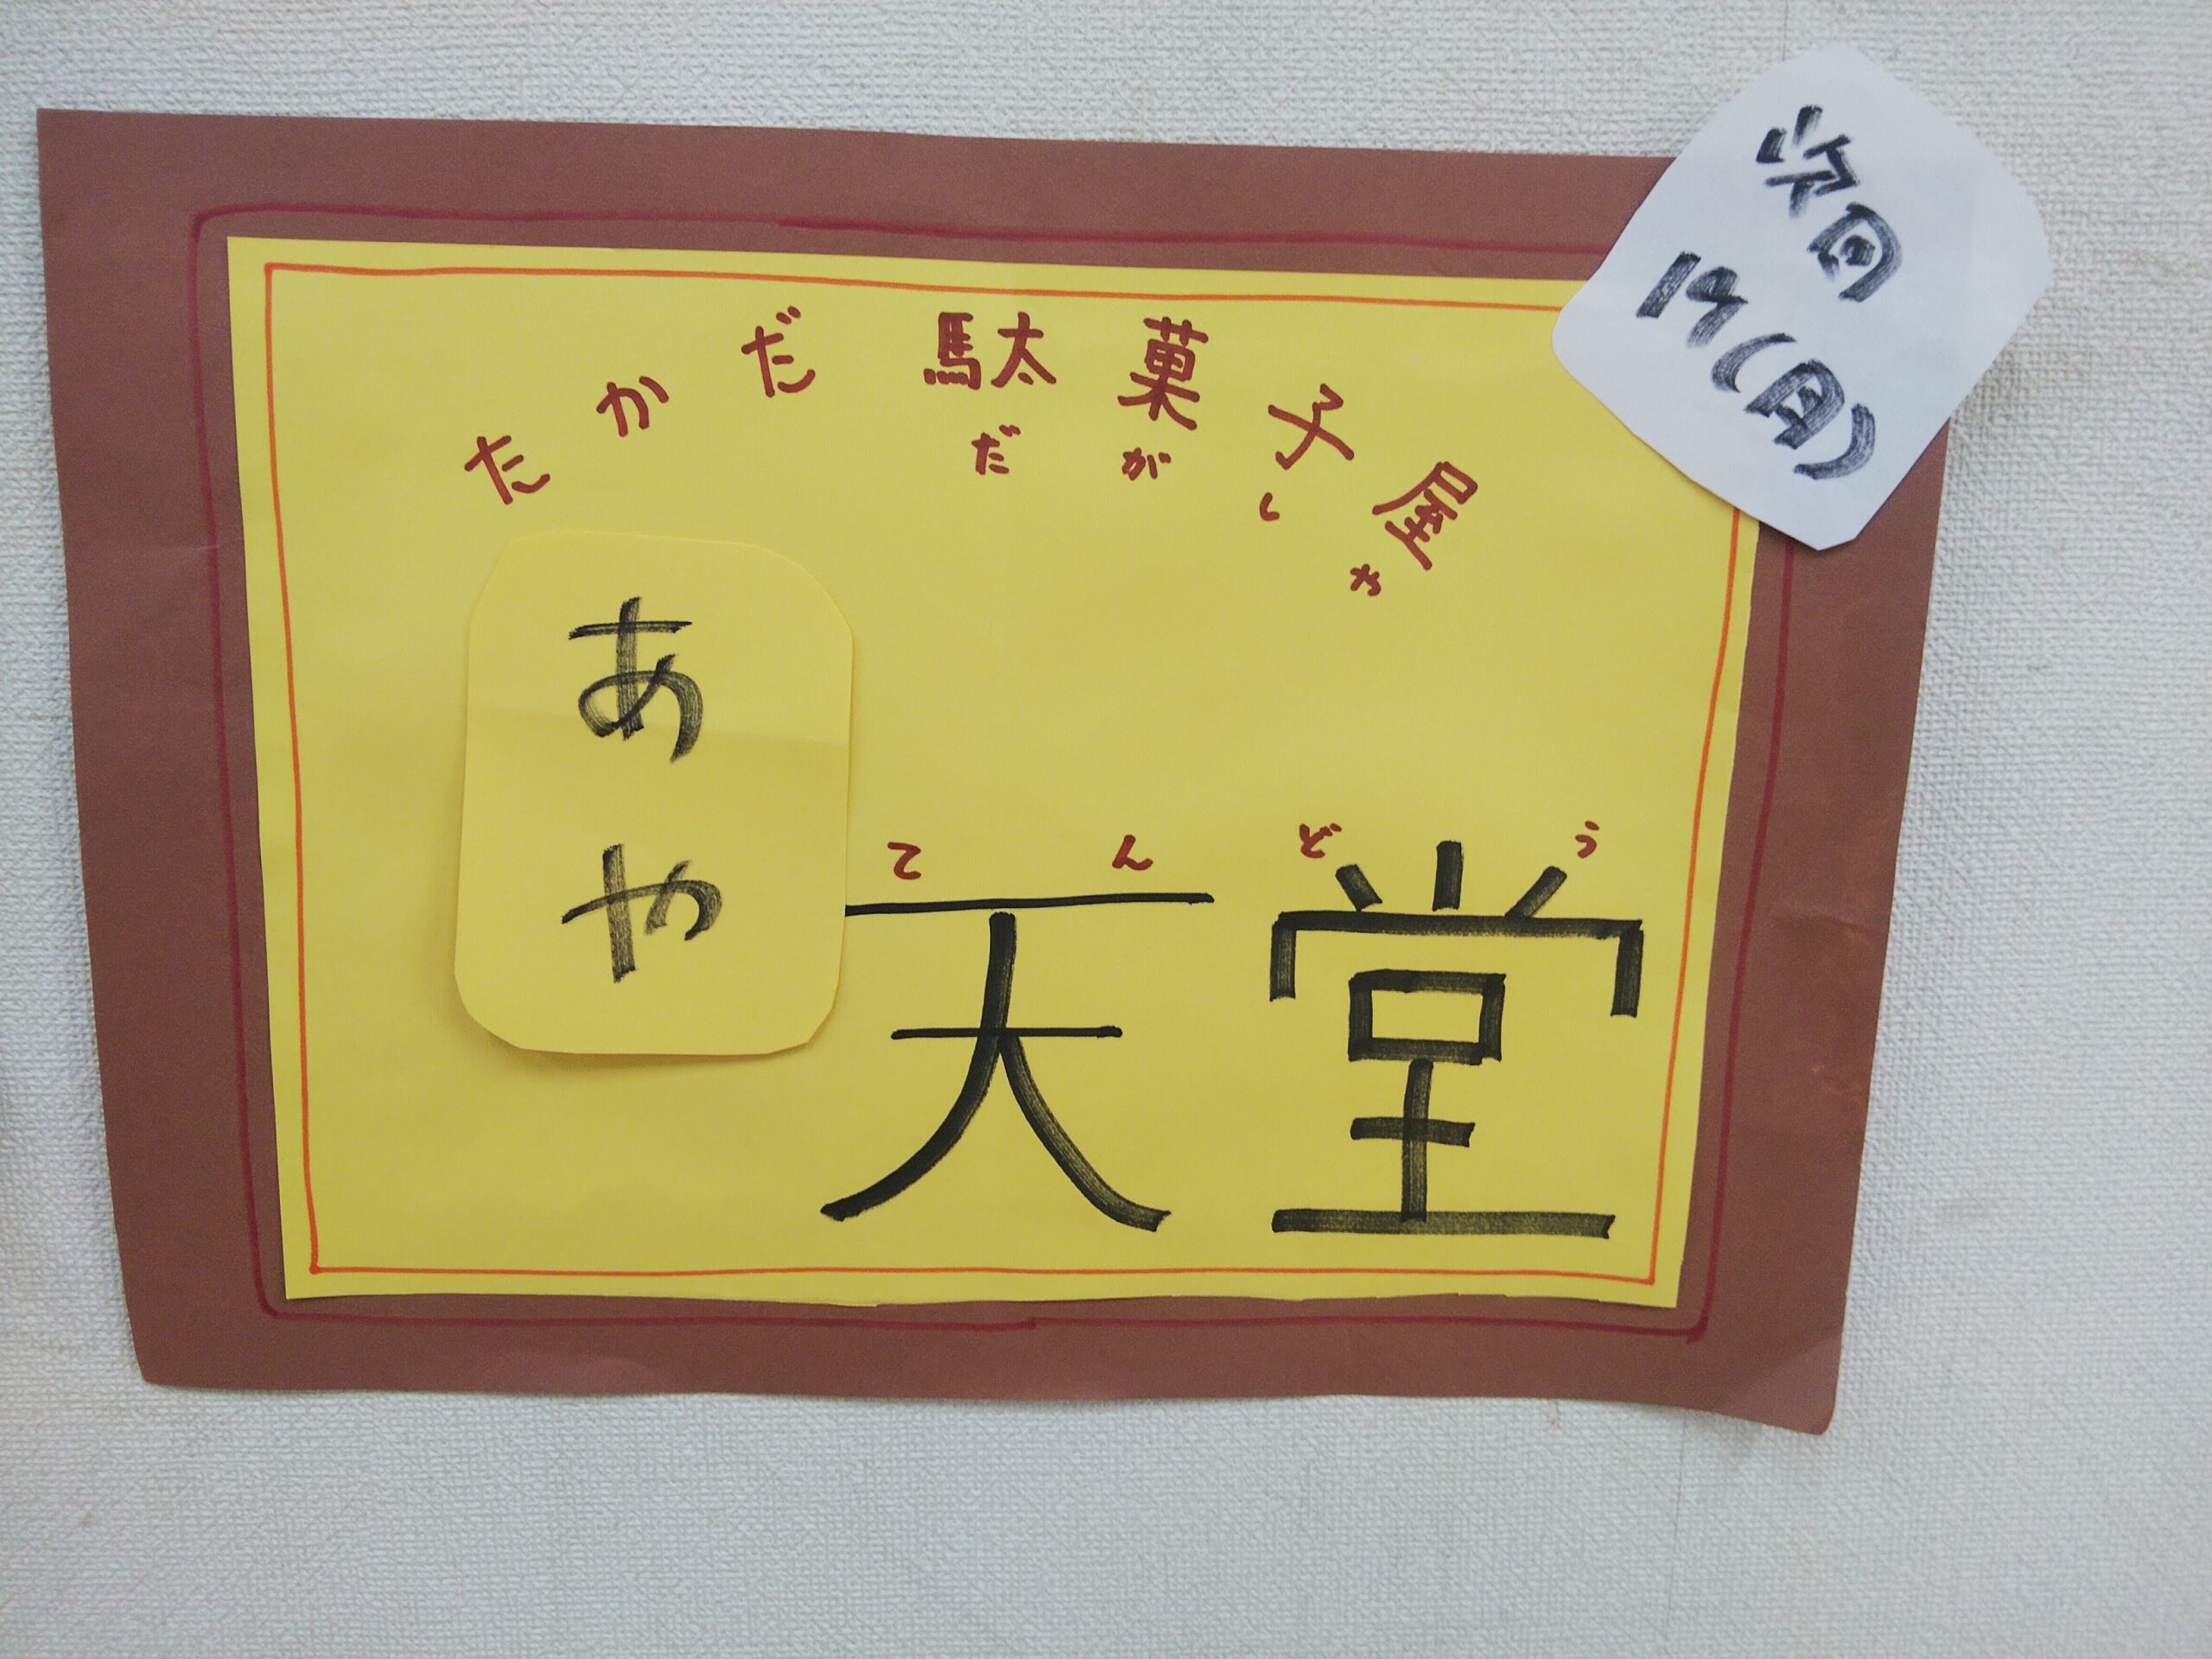 たかだ 駄菓子屋
だがしや
あや
てんどう
天堂
次回
19(月)